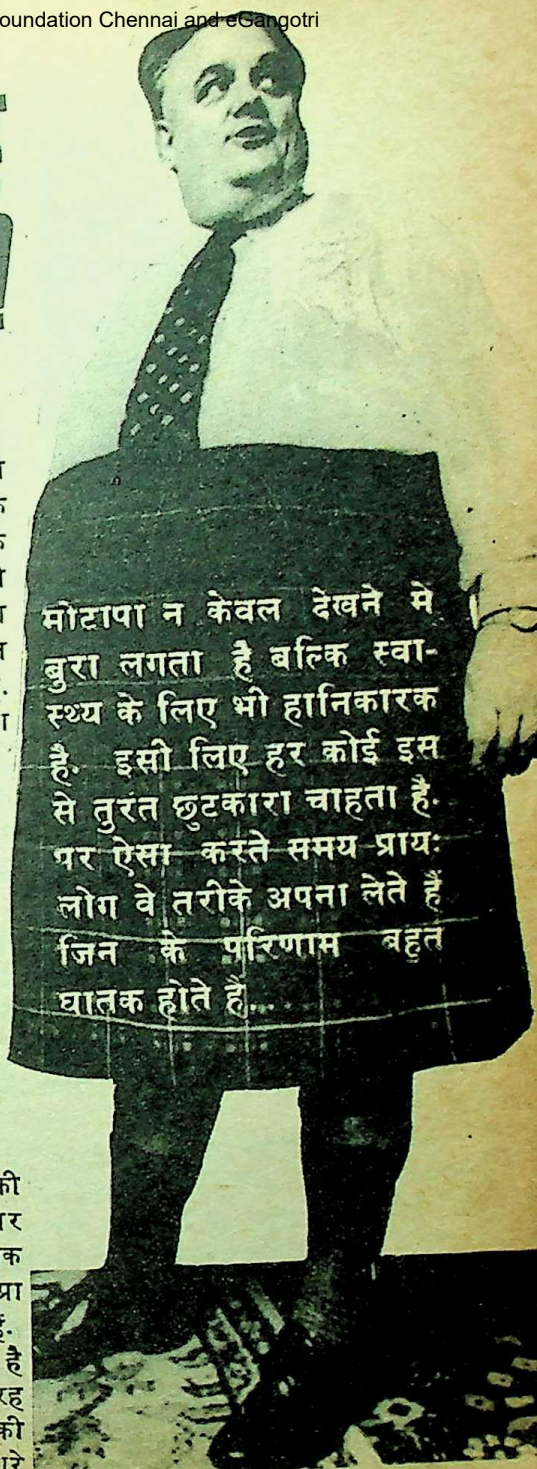 oundation Chennai and eGangotri
मोटापा न केवल देखने मे
बुरा लगता है बल्कि स्वा-
स्थ्य के लिए भी हानिकारक
है. इसी लिए हर कोई इस
से तुरंत छुटकारा चाहता है.
पर ऐसा करते समय प्रायः
लोग वे तरीके अपना लेते हैं
जिन के परिणाम बहुत
घातक होते हैं...
की
है
की